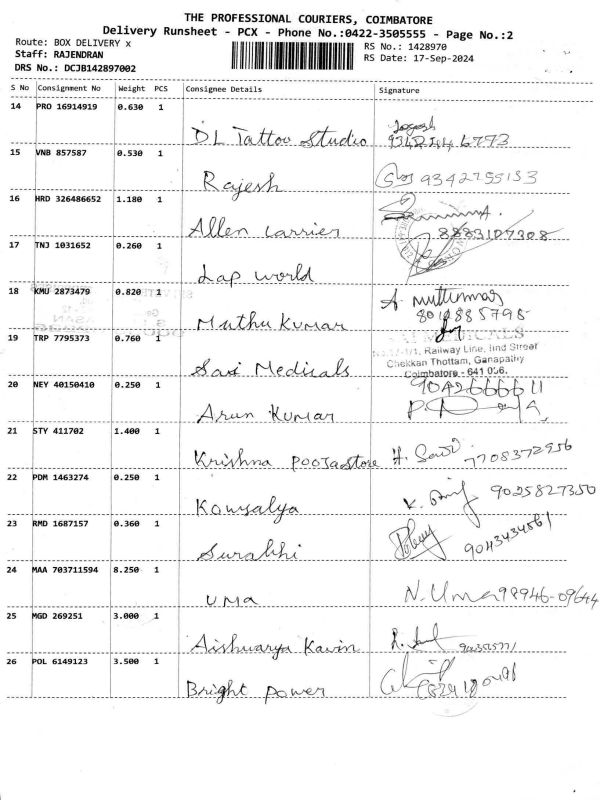 THE PROFESSIONAL COURIERS, COIMBATORE
Delivery Runsheet - PCX - Phone No.:0422-3505555 - Page No.:2
Route: BOX DELIVERY x
RS No.: 1428970
Staff: RAJENDRAN
RS Date: 17-Sep-2024
DRS No.: DCJB142897002
S No Consignment No Weight PCS Consignee Details Signature
14 PRO 16914919 0.630 1
DL Tattoo Studio
15 VNB 857587 0.530 1
Rajesh 9342755133
16 HRD 326486652 1.180 1
Allen carrier 8883107308
17 TNJ 1031652 0.260 1
Lap world
18 KMU 2873479 0.820 1
Muthu Kumar 8018885795
19 TRP 7795373 0.760 1
Railway Line, IInd Street
Chekkan Thottam, Ganapathy
Sasi Medicals Coimbatore - 641 006.
20 NEY 40150410 0.250 1 9042666611
Arun Kumar
21 STY 411702 1.400 1
Krishna Pooja store 7708372956
22 PDM 1463274 0.250 1
Kowsalya 9025827350
23 RMD 1687157 0.360 1
Surabhi 9043434561
24 MAA 703711594 8.250 1
UMA N. Uma 98946-09644
25 MGD 269251 3.000 1
Aishwarya Kavin
26 POL 6149123 3.500 1
Bright Power